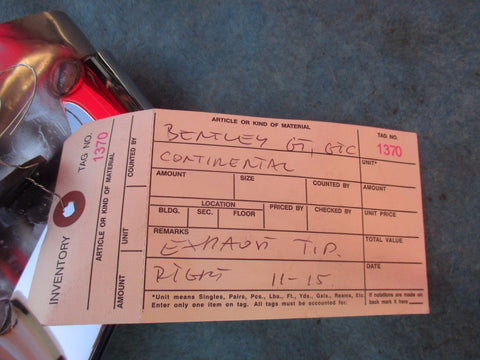 INVENTORY
TAG NO. 1370
ARTICLE OR KIND OF MATERIAL
COUNTED BY
UNIT
AMOUNT
ARTICLE OR KIND OF MATERIAL
BENTLEY GT, GTC
CONTINENTAL
TAG NO.
1370
UNIT*
AMOUNT
SIZE
COUNTED BY
AMOUNT
LOCATION
BLDG.
SEC.
FLOOR
PRICED BY
CHECKED BY
UNIT PRICE
REMARKS
EXHAUST TIP.
RIGHT 11-15
TOTAL VALUE
DATE
*Unit means Singles, Pairs, Pcs., Lbs., Ft., Yds., Gals., Reams, Etc.
Enter only one item on tag. All tags must be accounted for.
If notations are made on
back mark it here